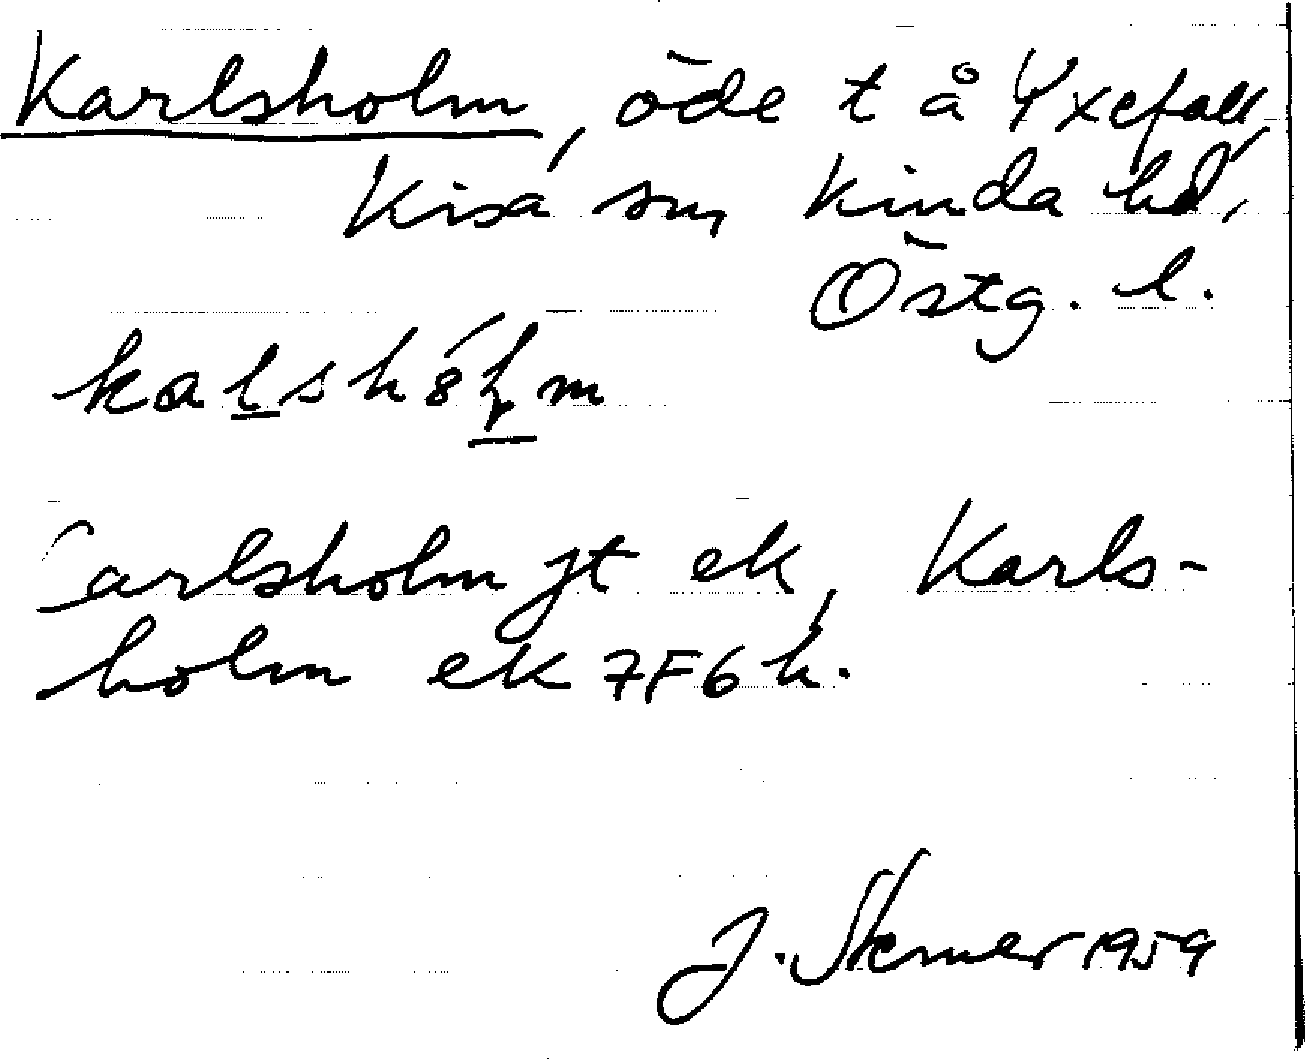 Karlsholm, öde t å Yxefall,
Kisa sn, Kinda hd,
Östg. l.
kalshålm
Carlsholm jt ek, Karls-
holm ek 7F6h.
J. Sterner 1959